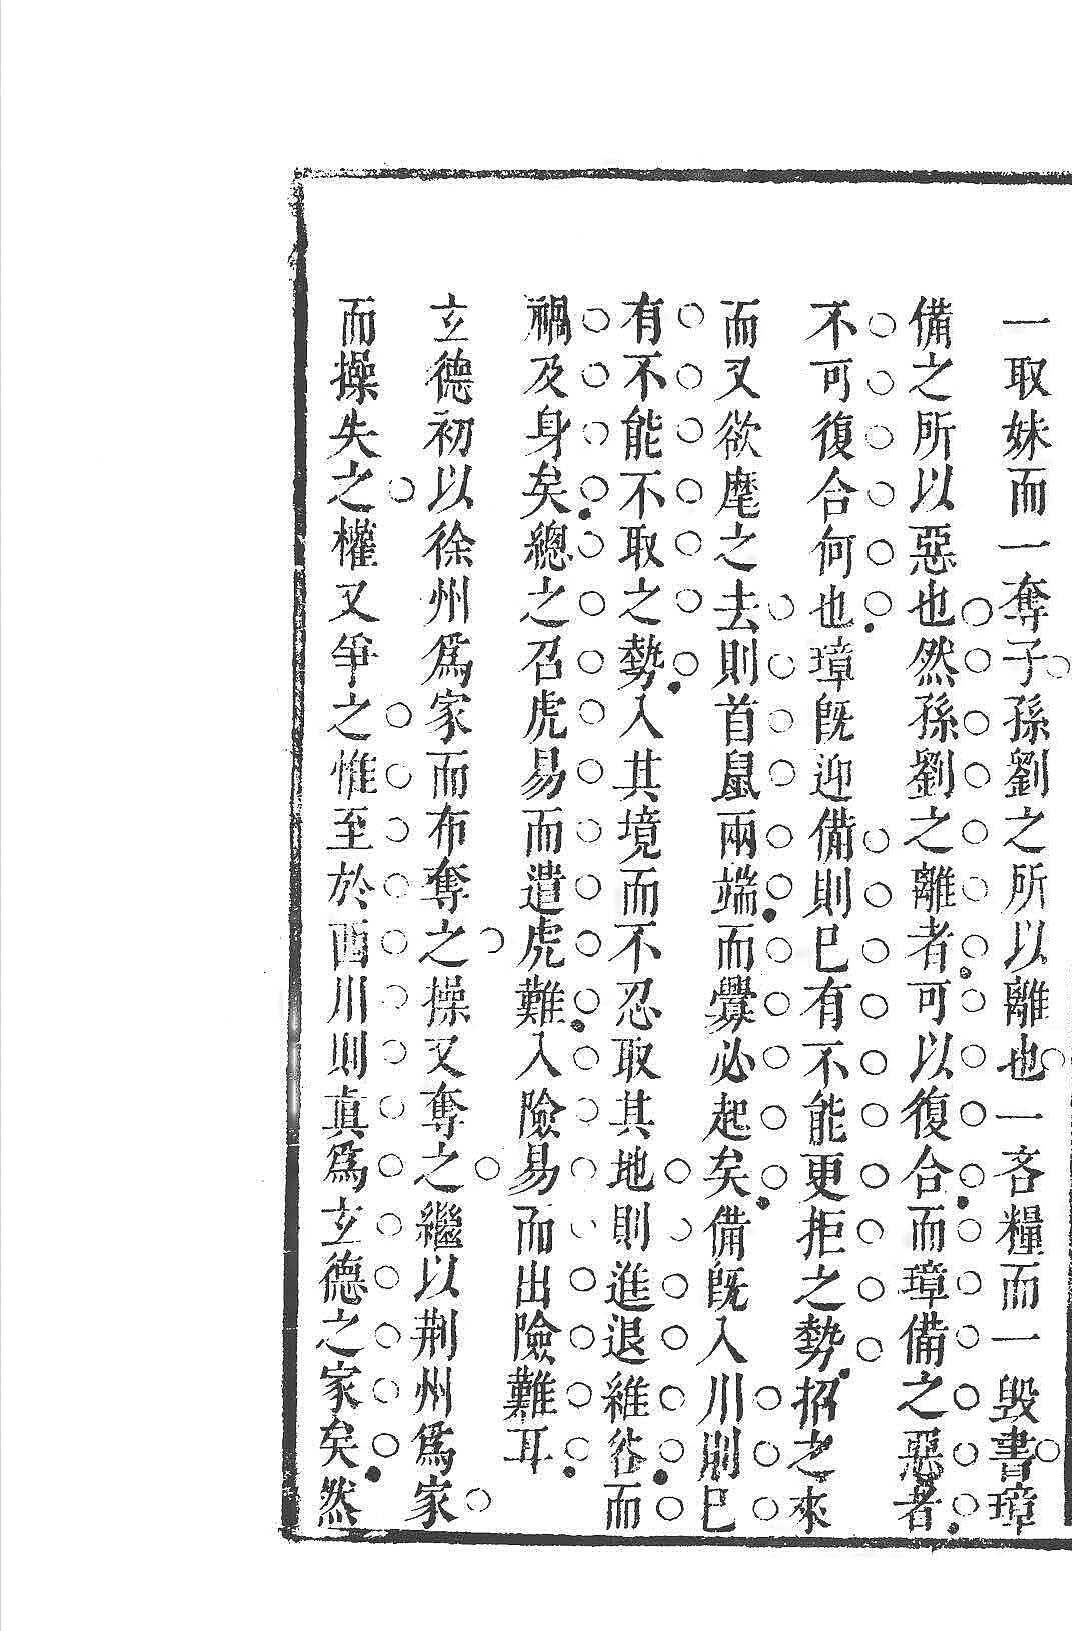 一取妹而一奪子孫劉之所以離也一吝糧而一毁書璋
備之所以惡也然孫劉之離者可以復合而璋備之惡者
不可復合何也璋旣迎備則已有不能更拒之勢招之來
而又欲麾之去則首鼠兩端而釁必起矣備旣入川則已
有不能不取之勢入其境而不忍取其地則進退維谷而
禍及身矣總之召虎易而遣虎難入險易而出險難耳
玄德初以徐州爲家而布奪之操又奪之繼以荆州爲家
而操失之權又爭之惟至於西川則眞爲玄德之家矣然